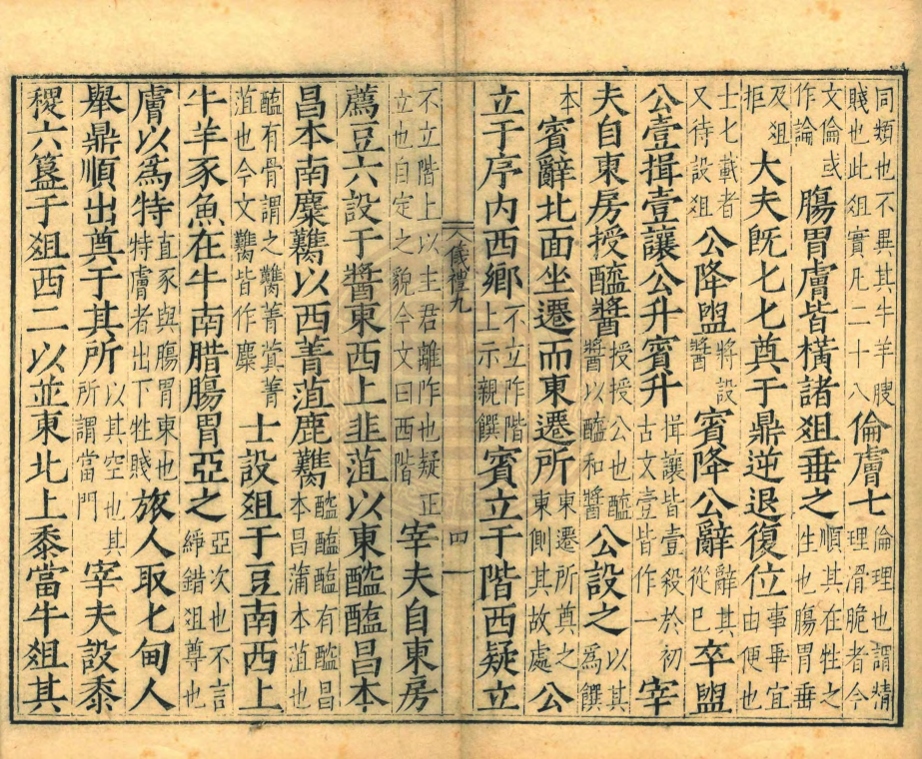 同類也不異其牛羊腴賤也此俎實凡二十八倫膚七倫理也謂精理滑脆者今
文倫或作論腸胃膚皆橫諸俎垂之順其在牲之性也腸胃垂
及俎拒大夫既匕匕奠于鼎逆退復位事畢宜由便也
士匕載者又待設俎公降盥將設醬賓降公辭辭其從巳卒盥
公壹揖壹讓公升賓升揖讓皆壹殺於初古文壹皆作一宰
夫自東房授醯醬授授公也醯醬以醯和醬公設之以其為饌
本賓辭北面坐遷而東遷所東遷所奠之東側其故處公
立于序内西鄉不立阼階上示親饌賓立于階西疑立
儀禮九 四
不立階上以主君離阼也疑正立也自定之貌今文曰西階宰夫自東房
薦豆六設于醬東西上韭菹以東醓醢昌本
昌本南麋臡以西菁菹鹿臡醓醢醢有醓昌本昌蒲本菹也
醢有骨謂之臡菁蓂菁菹也今文臡皆作麋士設俎于豆南西上
牛羊豕魚在牛南腊腸胃亞之亞次也不言綪錯俎尊也
膚以爲特直豕與腸胃東也特膚者出下牲賤旅人取匕甸人
舉鼎順出奠于其所以其空也其所謂當門宰夫設黍
稷六簋于俎西二以並東北上黍當牛俎其